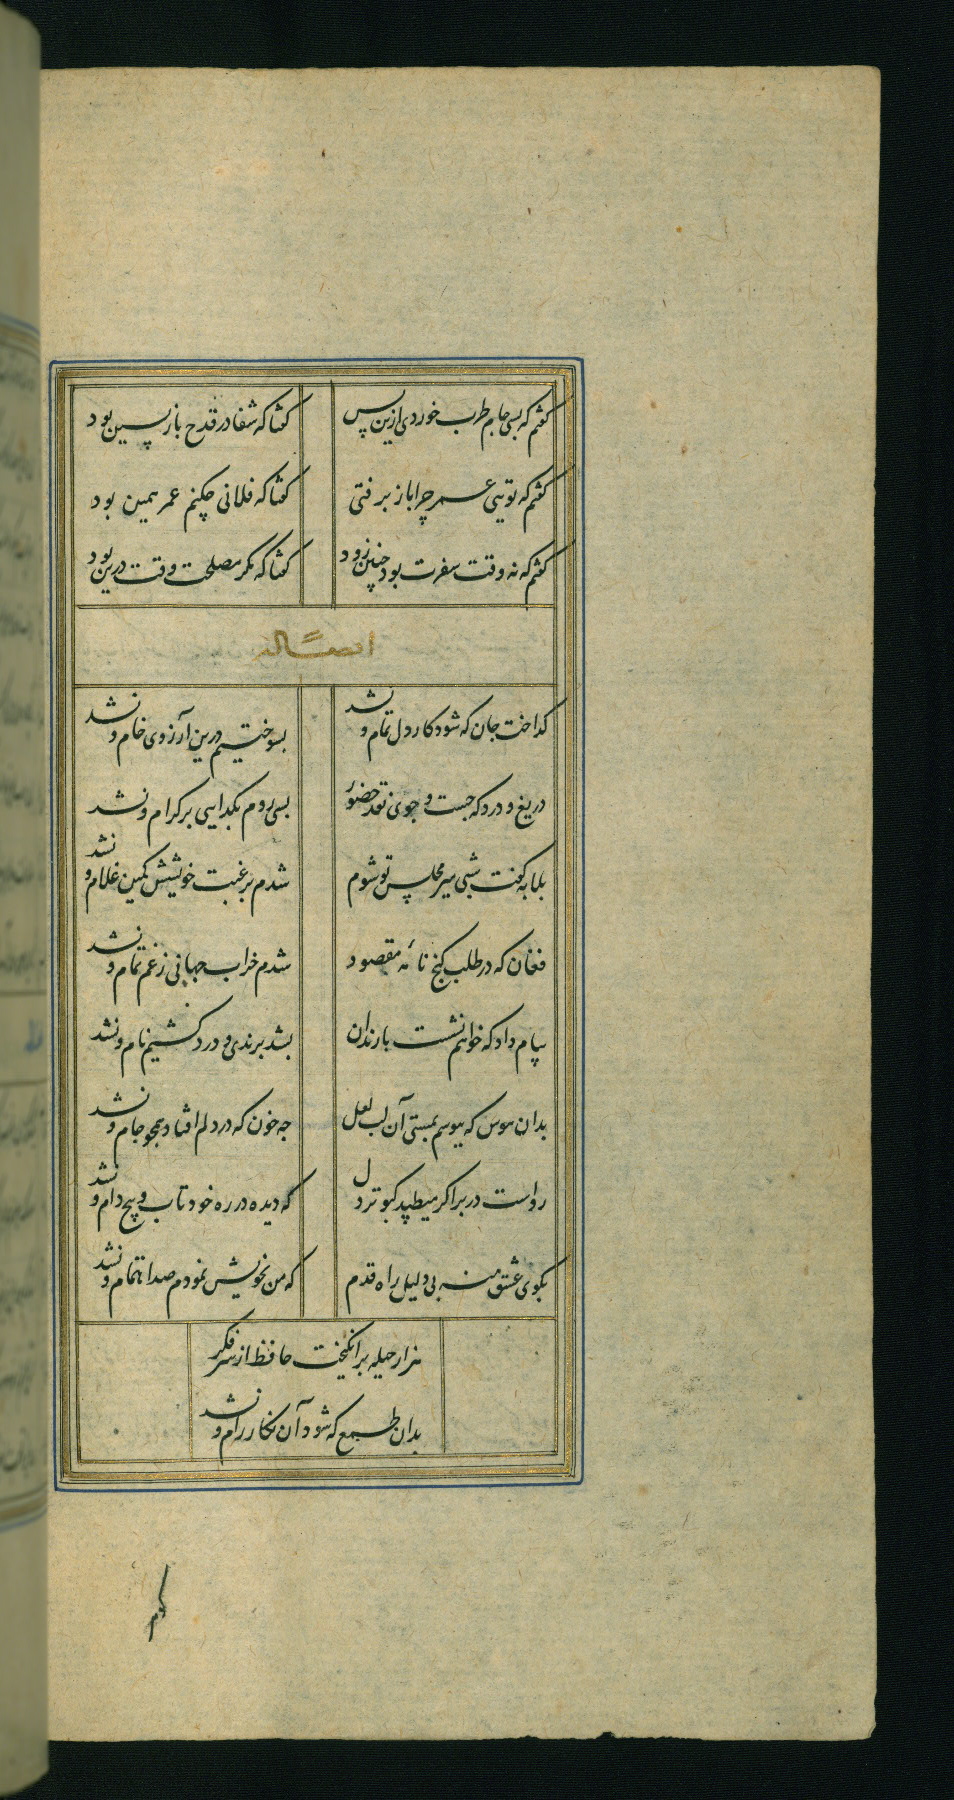 گفتم که بسی جام طرب خوردی ازین پس
گفتا که شفا در قدح باز پسین بود
گفتم که تو یی عمر چرا باز برفتی
گفتا که فلانی چکنم عمر همین بود
گفتم که نه وقت سفرت بود چنین زود
گفتا که مگر مصلحت وقت درین بود
گداخت جان که شود کار دل تمام و نشد
بسوختیم درین آرزوی خام و نشد
دریغ و درد که جست و جوی نقد حضور
بسی روم بکدایی بر کرام و نشد
بلابه گفت شبی میر مجلس تو شوم
شدم برغبت خویشش کمین غلام و نشد
فغان که در طلب گنج نامه مقصود
شدم خراب جهانی ز غم تمام و نشد
پیام داد که خواهم نشست با رندان
بشد برندی و درد کشیم نام و نشد
بدان هوس که ببوسم بمستی آن لب لعل
چه خون که در دلم افتاد همچو جام و نشد
رواست در بر اگر میطپد کبوتر دل
که دیده در ره خود تاب و پیچ دام و نشد
بکوی عشق منه بی دلیل راه قدم
که من بخویش نمودم صد اهتمام و نشد
هزار حیله برانگیخت حافظ از سر فکر
بدان طمع که شود آن نگار رام و نشد